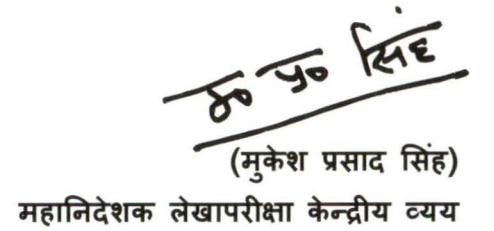 मु० प्र० सिंह
(मुकेश प्रसाद सिंह)
महानिदेशक लेखापरीक्षा केन्द्रीय व्यय